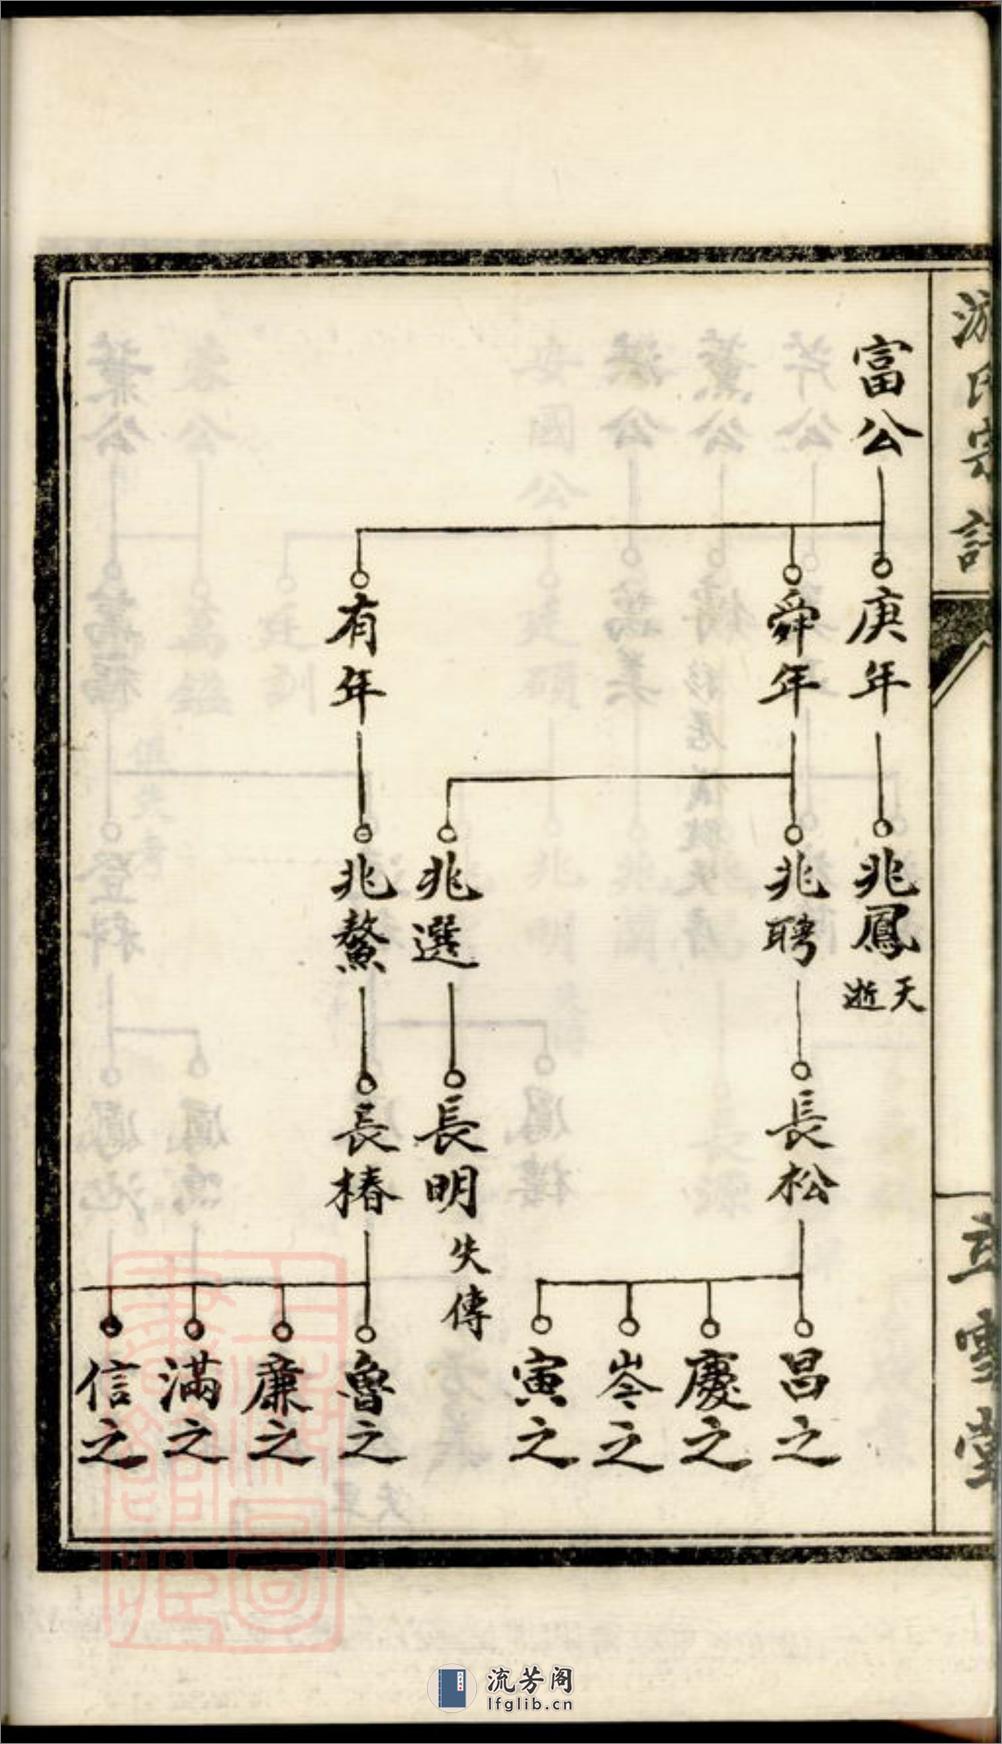 游氏宗譜
立雪堂
富公
庚年
舜年
有年
兆鳳
夭逝
兆聘
兆選
兆鰲
長松
長明
失傳
長椿
昌之
慶之
岑之
寅之
魯之
廉之
滿之
信之
流芳阁
lfglib.cn